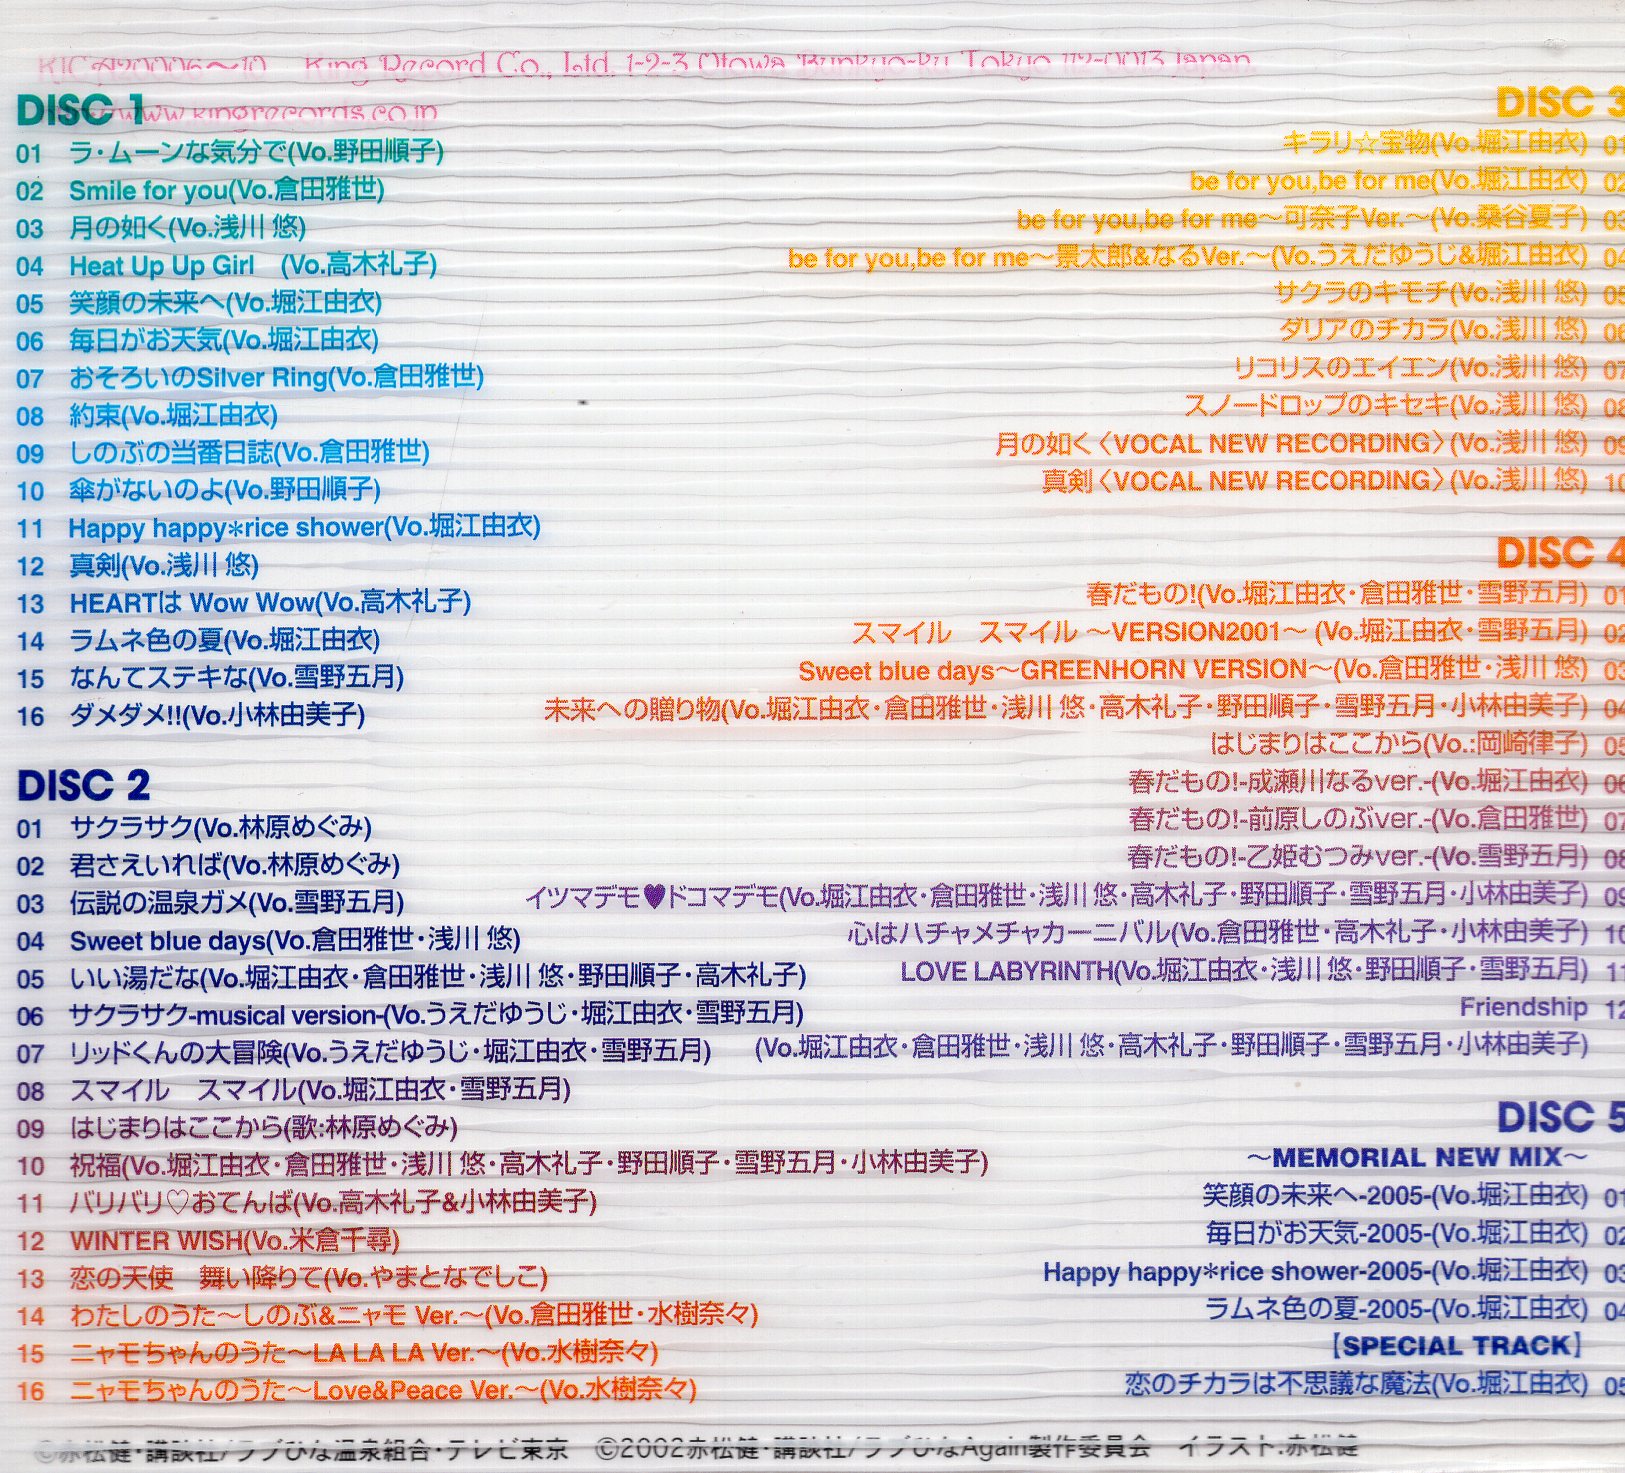 KICA 920006〜10 King Record Co., Ltd. 1-2-3 Otowa Bunkyo-ku Tokyo 112-0013 Japan.
www.kingrecords.co.jp
DISC 1
01 ラ・ムーンな気分で(Vo.野田順子)
02 Smile for you(Vo.倉田雅世)
03 月の如く(Vo.浅川 悠)
04 Heat Up Up Girl (Vo.高木礼子)
05 笑顔の未来へ(Vo.堀江由衣)
06 毎日がお天気(Vo.堀江由衣)
07 おそろいのSilver Ring(Vo.倉田雅世)
08 約束(Vo.堀江由衣)
09 しのぶの当番日誌(Vo.倉田雅世)
10 傘がないのよ(Vo.野田順子)
11 Happy happy*rice shower(Vo.堀江由衣)
12 真剣(Vo.浅川 悠)
13 HEARTは Wow Wow(Vo.高木礼子)
14 ラムネ色の夏(Vo.堀江由衣)
15 なんてステキな(Vo.雪野五月)
16 ダメダメ!!(Vo.小林由美子)
DISC 2
01 サクラサク(Vo.林原めぐみ)
02 君さえいれば(Vo.林原めぐみ)
03 伝説の温泉ガメ(Vo.雪野五月)
04 Sweet blue days(Vo.倉田雅世・浅川 悠)
05 いい湯だな(Vo.堀江由衣・倉田雅世・浅川 悠・野田順子・高木礼子)
06 サクラサク-musical version-(Vo.うえだゆうじ・堀江由衣・雪野五月)
07 リッドくんの大冒険(Vo.うえだゆうじ・堀江由衣・雪野五月)
08 スマイル スマイル(Vo.堀江由衣・雪野五月)
09 はじまりはここから(歌:林原めぐみ)
10 祝福(Vo.堀江由衣・倉田雅世・浅川 悠・高木礼子・野田順子・雪野五月・小林由美子)
11 バリバリ♡おてんば(Vo.高木礼子&小林由美子)
12 WINTER WISH(Vo.米倉千尋)
13 恋の天使 舞い降りて(Vo.やまとなでしこ)
14 わたしのうた〜しのぶ&ニャモ Ver.〜(Vo.倉田雅世・水樹奈々)
15 ニャモちゃんのうた〜LA LA LA Ver.〜(Vo.水樹奈々)
16 ニャモちゃんのうた〜Love&Peace Ver.〜(Vo.水樹奈々)
DISC 3
キラリ☆宝物(Vo.堀江由衣) 01
be for you,be for me(Vo.堀江由衣) 02
be for you,be for me〜可奈子Ver.〜(Vo.桑谷夏子) 03
be for you,be for me〜景太郎&なるVer.〜(Vo.うえだゆうじ&堀江由衣) 04
サクラのキモチ(Vo.浅川 悠) 05
ダリアのチカラ(Vo.浅川 悠) 06
リコリスのエイエン(Vo.浅川 悠) 07
スノードロップのキセキ(Vo.浅川 悠) 08
月の如く〈VOCAL NEW RECORDING〉(Vo.浅川 悠) 09
真剣〈VOCAL NEW RECORDING〉(Vo.浅川 悠) 10
DISC 4
春だもの!(Vo.堀江由衣・倉田雅世・雪野五月) 01
スマイル スマイル 〜VERSION2001〜 (Vo.堀江由衣・雪野五月) 02
Sweet blue days〜GREENHORN VERSION〜(Vo.倉田雅世・浅川 悠) 03
未来への贈り物(Vo.堀江由衣・倉田雅世・浅川 悠・高木礼子・野田順子・雪野五月・小林由美子) 04
はじまりはここから(Vo.:岡崎律子) 05
春だもの!-成瀬川なるver.-(Vo.堀江由衣) 06
春だもの!-前原しのぶver.-(Vo.倉田雅世) 07
春だもの!-乙姫むつみver.-(Vo.雪野五月) 08
イツマデモ♥ドコマデモ(Vo.堀江由衣・倉田雅世・浅川 悠・高木礼子・野田順子・雪野五月・小林由美子) 09
心はハチャメチャカーニバル(Vo.倉田雅世・高木礼子・小林由美子) 10
LOVE LABYRINTH(Vo.堀江由衣・浅川 悠・野田順子・雪野五月) 11
Friendship 12
(Vo.堀江由衣・倉田雅世・浅川 悠・高木礼子・野田順子・雪野五月・小林由美子)
DISC 5
〜MEMORIAL NEW MIX〜
笑顔の未来へ-2005-(Vo.堀江由衣) 01
毎日がお天気-2005-(Vo.堀江由衣) 02
Happy happy*rice shower-2005-(Vo.堀江由衣) 03
ラムネ色の夏-2005-(Vo.堀江由衣) 04
【SPECIAL TRACK】
恋のチカラは不思議な魔法(Vo.堀江由衣) 05
©赤松健・講談社/ラブひな温泉組合・テレビ東京 ©2002赤松健・講談社/ラブひなAgain製作委員会 イラスト:赤松健